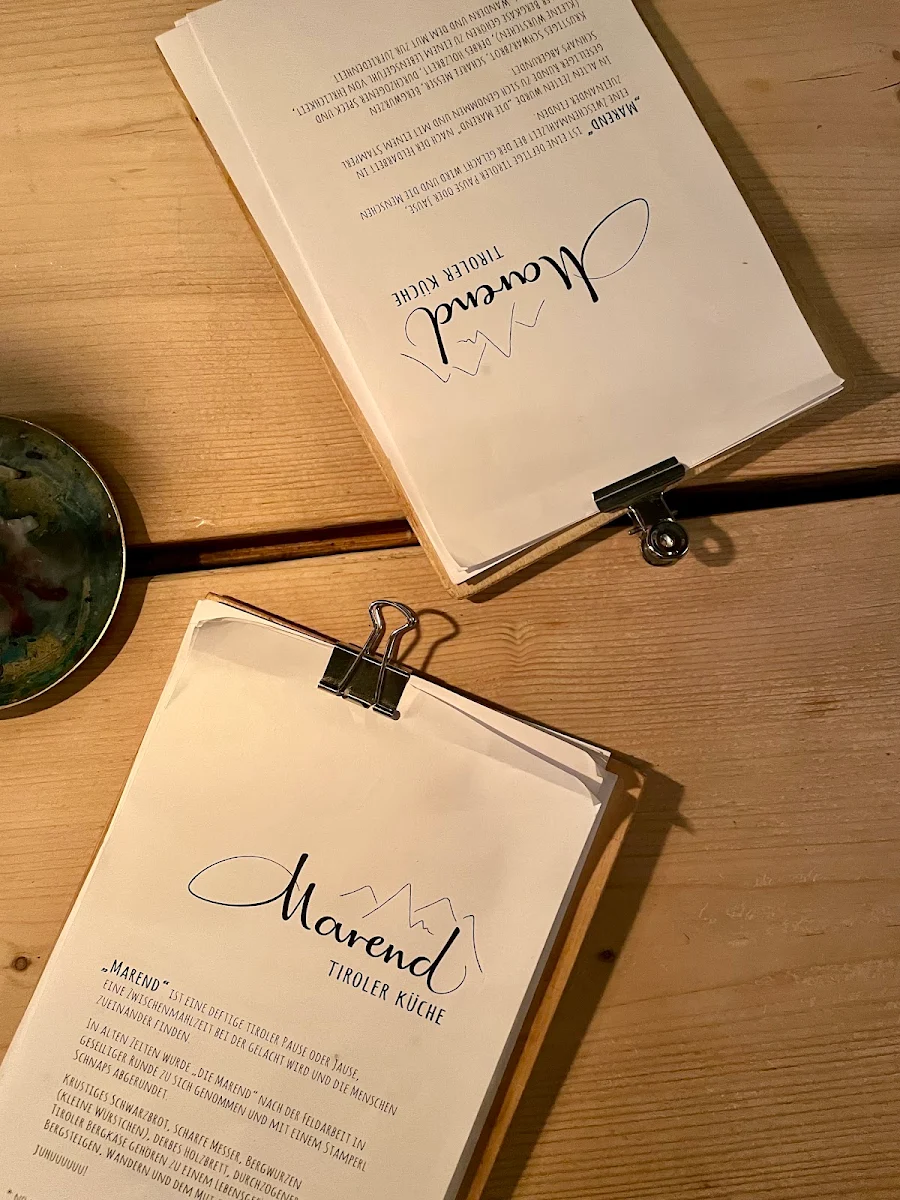 Marend
TIROLER KÜCHE
„MAREND“ IST EINE DEFTIGE TIROLER PAUSE ODER JAUSE,
EINE ZWISCHENMAHLZEIT BEI DER GELACHT WIRD UND DIE MENSCHEN
ZUEINANDER FINDEN.
IN ALTEN ZEITEN WURDE „DIE MAREND“ NACH DER FELDARBEIT IN
GESELLIGER RUNDE ZU SICH GENOMMEN UND MIT EINEM STAMPERL
SCHNAPS ABGERUNDET.
KRUSTIGES SCHWARZBROT, SCHARFE MESSER, BERGWURZEN
(KLEINE WÜRSTCHEN), DERBES HOLZBRETT, DURCHZOGENER SPECK UND
ER BERGKÄSE GEHÖREN ZU EINEM LEBENSGEFÜHL VON EHRLICHKEIT,
WANDERN UND DEM MUT ZUR ZUFRIEDENHEIT
Marend
TIROLER KÜCHE
„MAREND“ IST EINE DEFTIGE TIROLER PAUSE ODER JAUSE,
EINE ZWISCHENMAHLZEIT BEI DER GELACHT WIRD UND DIE MENSCHEN
ZUEINANDER FINDEN
IN ALTEN ZEITEN WURDE „DIE MAREND“ NACH DER FELDARBEIT IN
GESELLIGER RUNDE ZU SICH GENOMMEN UND MIT EINEM STAMPERL
SCHNAPS ABGERUNDET
KRUSTIGES SCHWARZBROT, SCHARFE MESSER, BERGWURZEN
(KLEINE WÜRSTCHEN), DERBES HOLZBRETT, DURCHZOGENER
TIROLER BERGKÄSE GEHÖREN ZU EINEM LEBENSGEF
BERGSTEIGEN, WANDERN UND DEM MUT
JUHUUUUUU!